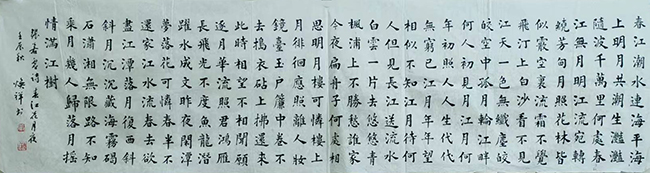 春江潮水連海平海
上明月共潮生灩灩
隨波千萬里何處春
江無月明江流宛轉
繞芳甸月照花林皆
似霰空裏流霜不覺
飛汀上白沙看不見
江天一色無纖塵皎
皎空中孤月輪江畔
何人初見月江月何
年初照人人生代代
無窮已江月年年望
相似不知江月待何
人但見長江送流水
白雲一片去悠悠青
楓浦上不勝愁誰家
今夜扁舟子何處相
思明月樓可憐樓上
月徘徊應照離人妝
鏡臺玉戶簾中卷不
去搗衣砧上拂還來
此時相望不相聞願
逐月華流照君鴻雁
長飛光不度魚龍潛
躍水成文昨夜閒潭
夢落花可憐春半不
還家江水流春去欲
盡江潭落月復西斜
斜月沉沉藏海霧碣
石瀟湘無限路不知
乘月幾人歸落月搖
情滿江樹
張若虛詩春江花月夜
壬辰秋 煥祥書